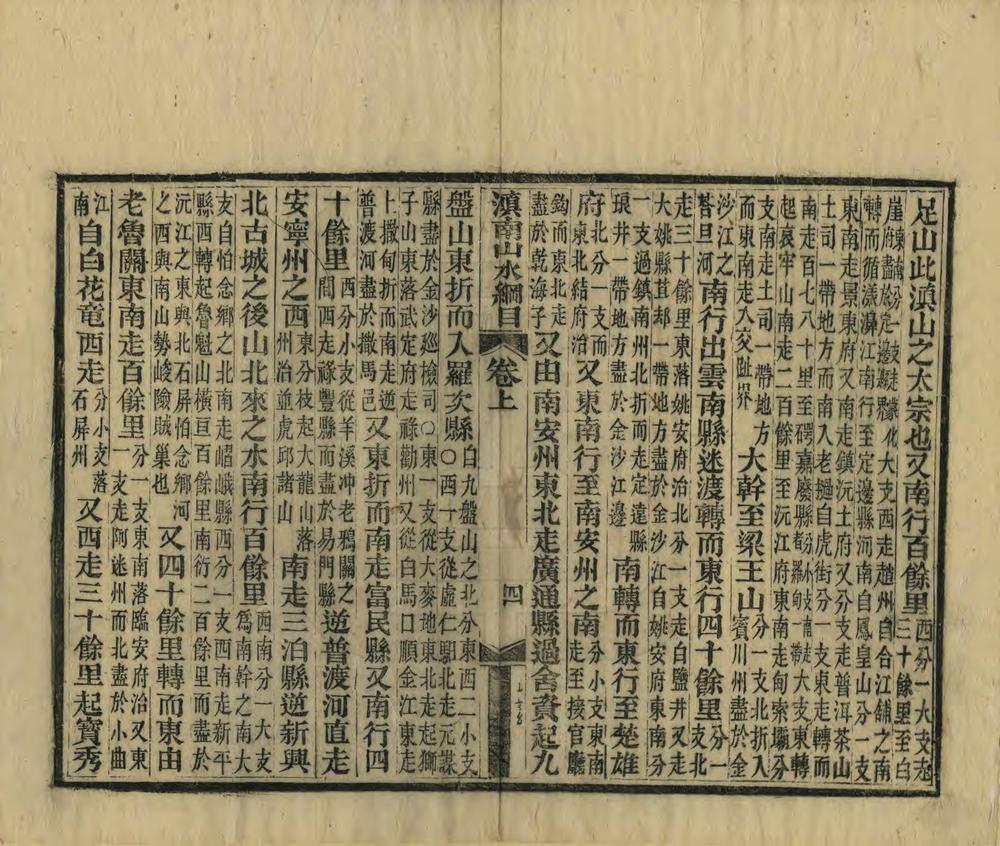 足山此滇山之太宗也又南行百餘里西分一大支起
三十餘里至白
崖東南分一支走蒙化大支西走趙州自合江舖之南
府盡於定邊縣
轉而循漾濞江南行至定邊縣而南自鳳皇山分一支
東南走景東府又南走鎮沅土府又分支走普洱茶山
土司一帶地方而南入老撾自虎街分一支東走轉而
南走百七八十里至碍嘉廢縣者羅甸一帶大支東轉
起哀牢山南走二百餘里至沅江府東南走甸索壩分
支南走土司一帶地方
而東南走入交趾界
大幹至梁王山分一支北折入
賓川州盡於金
沙江之
苔旦河
南行出雲南縣迷渡轉而東行四十餘里分一
支北
走三十餘里東落姚安府治北分一支走白鹽井又走
大姚縣苴却一帶地方盡於金沙江自姚安府東南分
一支過鎮南州北折而走定遠縣
琅井一帶地方盡於金沙江邊
南轉而東行至楚雄
府北分一支而
東北結府治
又東南行至南安州之南分小支東南
走至接官廳
鈎而東北走
盡於乾海子
又由南安州東北走廣通縣過舍資起九
滇南山水綱目 卷上 四
盤山東折而入羅次縣白九盤山之北分東西二小支
○西一支從虛仁驛北走元謀
縣盡於金沙廵檢司○東一支從大麥地東北走起獅
子山東落武定府走祿勸州又從白馬口順金江東走
上撒甸折而南走逆
普渡河盡於撒馬邑
又東折而南走富民縣又南行四
十餘里西分小支從羊溪冲老鴉關之
間西走祿豐縣而盡於易門縣
逆普渡河直走
安寧州之西東分枝起大龍山落
州治並虎邱諸山
南走三泊縣逆新興
北古城之後山北來之水南行百餘里西南分一大支
爲南幹之南大
支自怕念鄉之北南走嶍峨縣西分一支西南走新平
縣西轉起魯魁山橫亘百餘里南衍二百餘里而盡於
沅江之東與北石屏怕念鄉河
之西與南山勢峻險賊巢也
又四十餘里轉而東由
老魯關東南走百餘里分一支東南落臨安府治又東
一支走阿迷州而北盡於小曲
江
南
自白花竜西走分小支落
石屏州
又西走三十餘里起寶秀